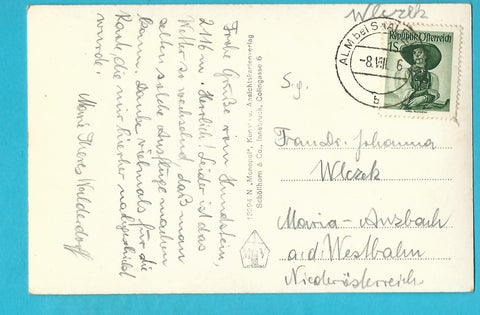 Frohe Grüße vom Hundstein,
2116 m. Herrlich! Leider ist das
Wetter so wechselnd, daß man
selten solche Ausflüge machen
kann. Danke vielmals für die
Karte, die mir hierher nachgeschickt
wurde.
Marie Theres Walderdorff
12294 N. Monopol-, Kunst- u. Ansichtskartenverlag
Schöllhorn & Co., Innsbruck, Colingasse 6
Wlczek
ALM bei SAAL
-8.VIII. 6
b
Republik Österreich
1S
S.g.
Frau Dr. Johanna
Wlczek
Maria-Anzbach
a. d. Westbahn
Niederösterreich